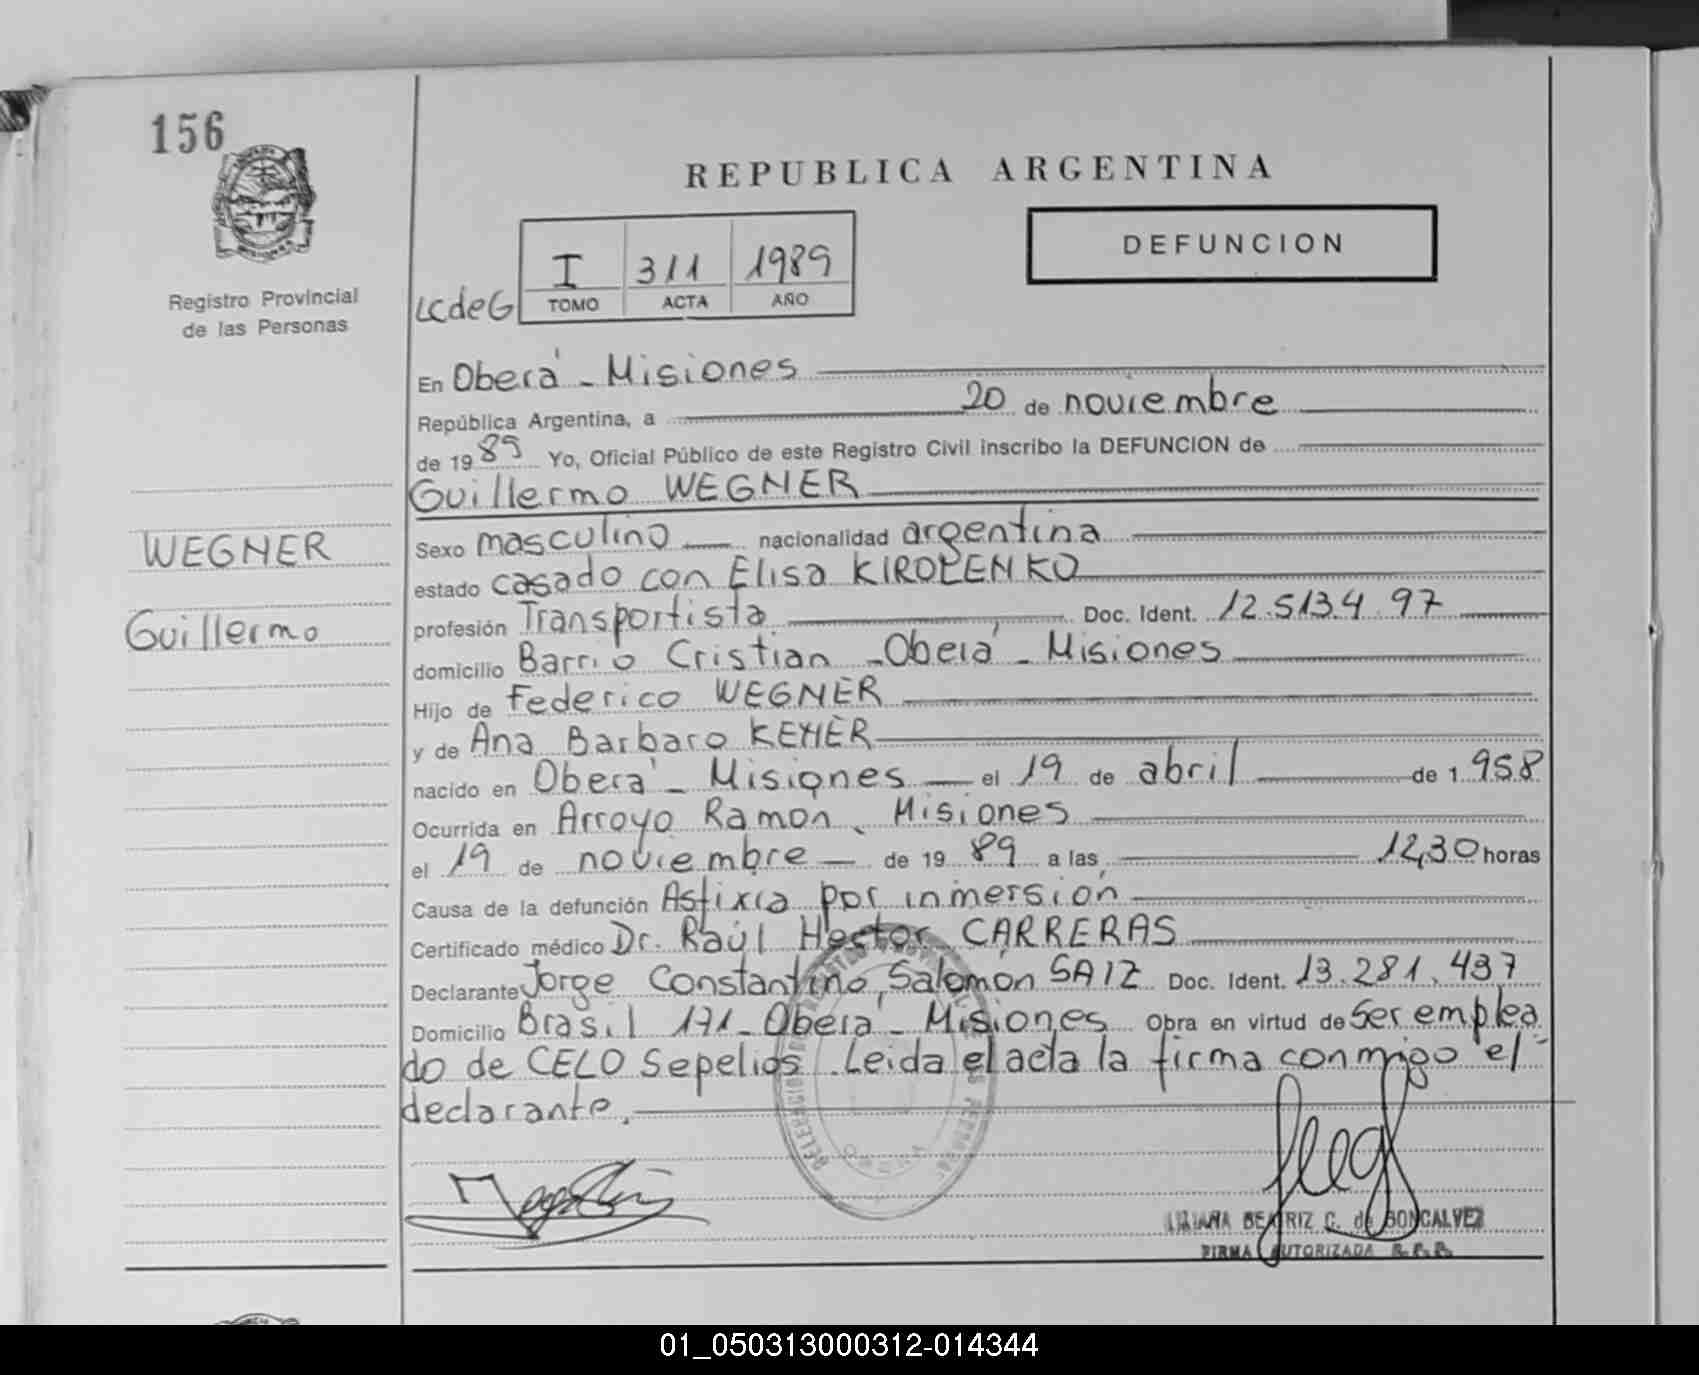 156
REPUBLICA ARGENTINA
DEFUNCION
I 311 1989
TOMO ACTA AÑO
LCdeG
Registro Provincial
de las Personas
En Oberá - Misiones
República Argentina, a 20 de noviembre
de 1989 Yo, Oficial Público de este Registro Civil inscribo la DEFUNCION de
Guillermo WEGNER
WEGNER
Guillermo
Sexo masculino nacionalidad argentina
estado casado con Elisa KIROLENKO
profesión Transportista Doc. Ident. 12.513.497
domicilio Barrio Cristian - Oberá - Misiones
Hijo de Federico WEGNER
y de Ana Barbaro
nacido en Oberá - Misiones el 19 de abril de 1.958
Ocurrida en Arroyo Ramon, Misiones
el 19 de noviembre de 1989 a las, 12,30 horas
Causa de la defunción Asfixia por inmersión
Certificado médico Dr. Raúl Hector CARRERAS
Declarante Jorge Constantino, Salomón SAIZ Doc. Ident. 13.281.437
Domicilio Brasil 171 - Oberá - Misiones Obra en virtud de ser emplea
do de CELO Sepelios. Leida el acta la firma conmigo el
declarante.
LILIANA BEATRIZ C. de GONCALVEZ
FIRMA AUTORIZADA
01_050313000312-014344